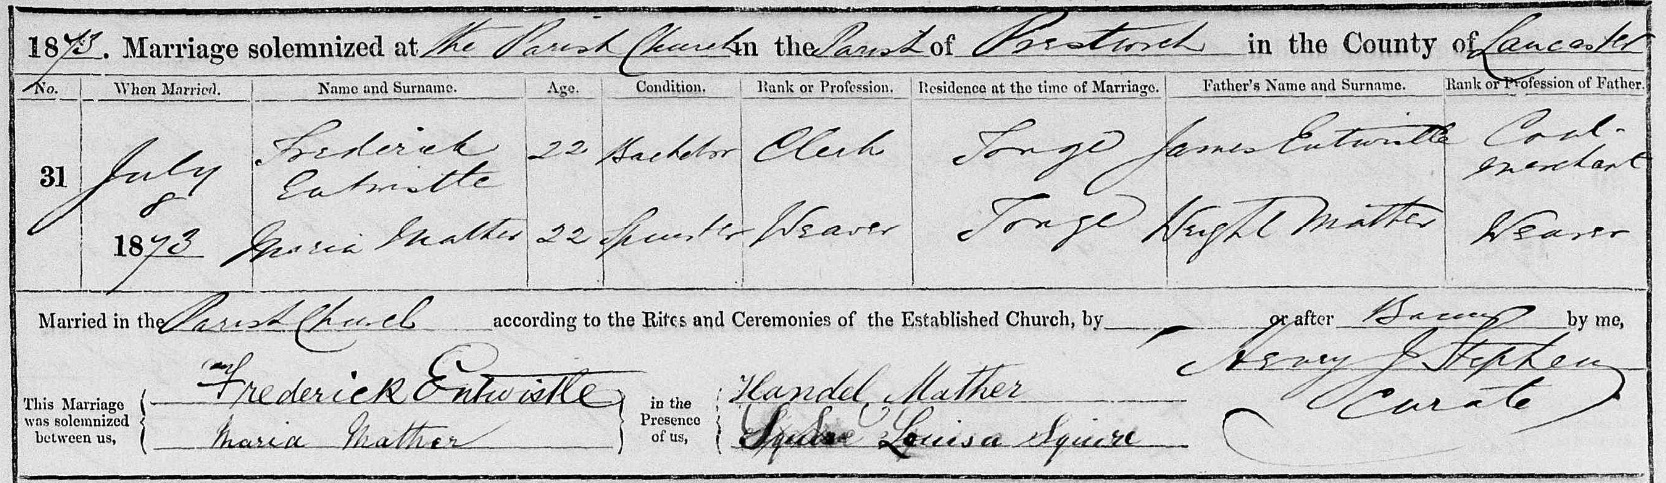 1873. Marriage solemnized at the Parish Church in the Parish of Prestwich in the County of Lancaster
No. When Married. Name and Surname. Age. Condition. Rank or Profession. Residence at the time of Marriage. Father's Name and Surname. Rank or Profession of Father.
31 July 8 1873
Frederick Entwistle 22 Bachelor Clerk Tonge James Entwistle Coal-merchant
Maria Mather 22 Spinster Weaver Tonge Wright Mather Weaver
Married in the Parish Church according to the Rites and Ceremonies of the Established Church, by or after Banns by me,
Henry J Stephen
Curate
This Marriage was solemnized between us,
Frederick Entwistle
Maria Mather
in the Presence of us,
Handel Mather
Louisa Squire